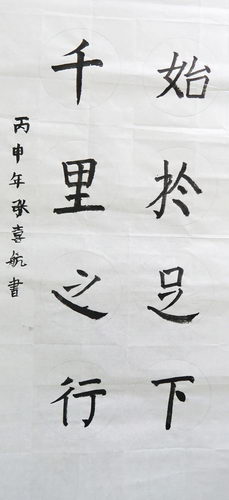 始扵足下
千里之行
丙申年張喜航書